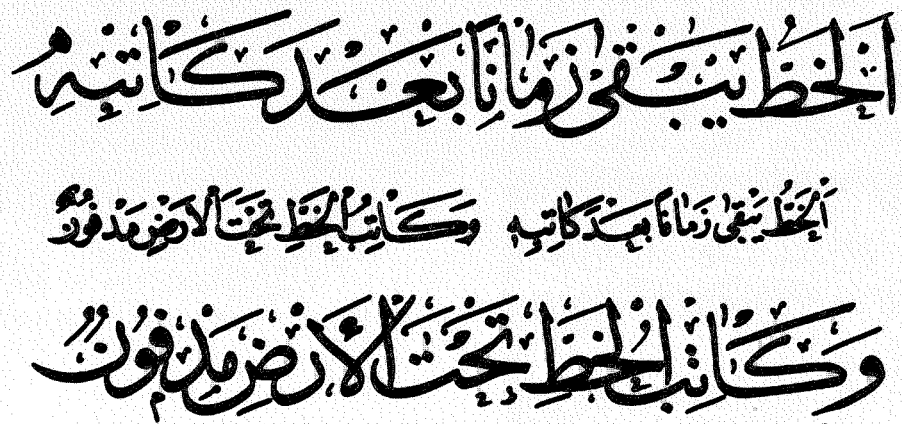 اَلْخَطُّ يَبْقَى زَمَانًا بَعْدَ كَاتِبِهِ
اَلْخَطُّ يَبْقَى زَمَانًا بَعْدَ كَاتِبِهِ وَكَاتِبُ الْخَطِّ تَحْتَ الْاَرْضِ مَدْفُونٌ
وَكَاتِبُ الْخَطِّ تَحْتَ الْاَرْضِ مَدْفُونٌ